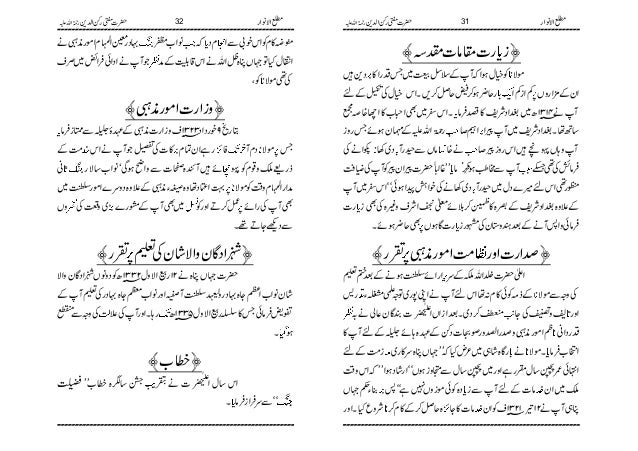 مطلع الانوار 31 حضرت مفتی رکن الدین رحمۃ اللہ علیہ
زیارت مقامات مقدسہ
مولانا کو خیال ہوا کہ آپ کے سلاسل بیعت میں جس قدر اکابر دین ہیں
ان کے مزاروں پر کم از کم ایک بار حاضر ہوکر فیض حاصل کریں۔ اس خیال کی تکمیل کے لئے
آپ نے ۱۳۱۴ھ میں بغداد شریف کا قصد فرمایا۔ سفر میں بھی احباب کا اچھا خاصہ مجمع
ساتھ تھا۔ بغداد شریف میں آپ پیر ابراہیم صاحب رحمۃ اللہ علیہ کے مہمان ہوئے جس روز
آپ وہاں پہونچے ہیں اس روز پیر صاحب نے خانساماں سے حیدرآبادی کھانہ پکوانے کی
فرمائش کی تھی جسکے سبب آپ سے مخاطب ہوکر فرمایا ”غالباً حضرت پیران پیر کو آپ کی ضیافت
منظور تھی اس لئے میرے دل میں حیدرآبادی کھانے کی خواہش پیدا ہوئی“ اس سفر میں آپ
کے علاوہ بغداد شریف کے بصرہ کاظمین کربلائے معلی نجف اشرف وغیرہ کی بھی زیارت
فرمائی واپس آنے کے بعد ہندوستان کی مشہور زیارت گاہوں پر بھی حاضر ہوئے۔
صدارت اور نظامت امور مذہبی پر تقرر
اعلیٰ حضرت خلد اللہ ملکہ کے سریرآرائے سلطنت ہونے کے بعد ختم تعلیم
کی وجہ سے مولانا کے ذمہ کوئی کام نہ تھا اس لئے آپ نے اپنی پوری توجہ علمی مشغلہ تدریس
اور تالیف و تصنیف کی جانب منعطف کردی۔ بعد ازاں اعلیٰحضرت بندگان عالی نے بہ نظر
قدردانی ناظم امور مذہبی و صدر الصدور صوبجات دکن کے عہدہ ہائے جلیلہ کے لئے آپ کا
انتخاب فرمایا۔ مولانا نے بارگاہ شاہی میں عرض کیا کہ ”جہاں پناہ سرکاری ملازمت کے لئے
انتہائی عمر پچپن سال مقرر ہے اور میں پچپن سال سے متجاوز ہوں“ ارشاد ہوا ”کہ اس وقت
ملک میں ان خدمات کے لئے آپ سے زیادہ کوئی موزوں نہیں ہے“ پس بر بناء حکم جہاں
پناہی آپ نے ۱۲ تیر ۱۳۲۱ف کو ان خدمات کا جائزہ حاصل کرکے کام کرنا شروع کیا۔ اور
حضرت مفتی رکن الدین رحمۃ اللہ علیہ 32 مطلع الانوار
مفوضہ کام کو اس خوبی سے انجام دیا کہ جب نواب مظفر جنگ بہادر معین المہام امور مذہبی نے
انتقال کیا تو جہاں پناہ ظل اللہ نے اس قابلیت کے مدنظر جو آپ نے ادائی فرائض میں صرف
کی تھی مولانا کو،
وزارت امور مذہبی
بتاریخ ۹ خورداد ۱۳۲۳ف وزارت مذہبی کے عہدۂ جلیلہ سے ممتاز فرمایا۔
جس پر مولانا دم آخر فائز رہے ان تمام برکات کی تفصیل جو آپ نے اس خدمت کے
ذریعہ ملک و قوم کو پہونچائے ہیں آئندہ صفحات سے واضح ہوگی۔ نواب سالار جنگ ثانی
مدارالمہام وقت کو مولانا پر بہت اعتماد تھا وہ صیغہ مذہبی کے علاوہ دوسرے امور سلطنت میں
بھی آپ کی رائے پر عمل کرتے اور کونسل میں بھی آپ کے مشورے بڑی وقعت کی نظروں
سے دیکھے جاتے تھے۔
شہزادگان والاشان کی تعلیم پر تقرر
حضرت جہاں پناہ نے ۱۲ ربیع الاول ۱۳۳۲ھ کو دونوں شہزادگان والا
شان نواب اعظم جاہ بہادر ولیعہد سلطنت آصفیہ اور نواب معظم جاہ بہادر کی تعلیم آپ کے
تفویض فرمائی جس کا سلسلہ ربیع الاول ۱۳۳۵ھ تک رہا۔ اور آپ کی علالت کی وجہ سے منقطع
ہوگیا۔
خطاب
اس سال اعلیٰحضرت نے بتقریب جشن سالگرہ خطاب ”فضیلت
جنگ“ سے سرفراز فرمایا۔